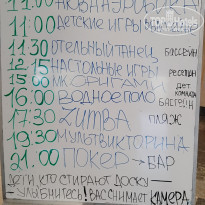 11.00 ДЕТСКИЕ ИГРЫ
11.30 ОТЕЛЬНЫЙ ТАНЕЦ БАССЕЙН
12.15 НАСТОЛЬНЫЕ ИГРЫ РЕСЕПШН
15.00 МК ОРИГАМИ ДЕТ. КОМНАТА
16.00 ВОДНОЕ ПОЛО БАССЕЙН
17.30 ZUMBA ПЛЯЖ
19.30 МУЛЬТВИКТОРИНА
21.00 ПОКЕР → БАР
ДЕТИ КТО СТИРАЮТ ДОСКУ —
УЛЫБНИТЕСЬ! ВАС СНИМАЕТ КАМЕРА